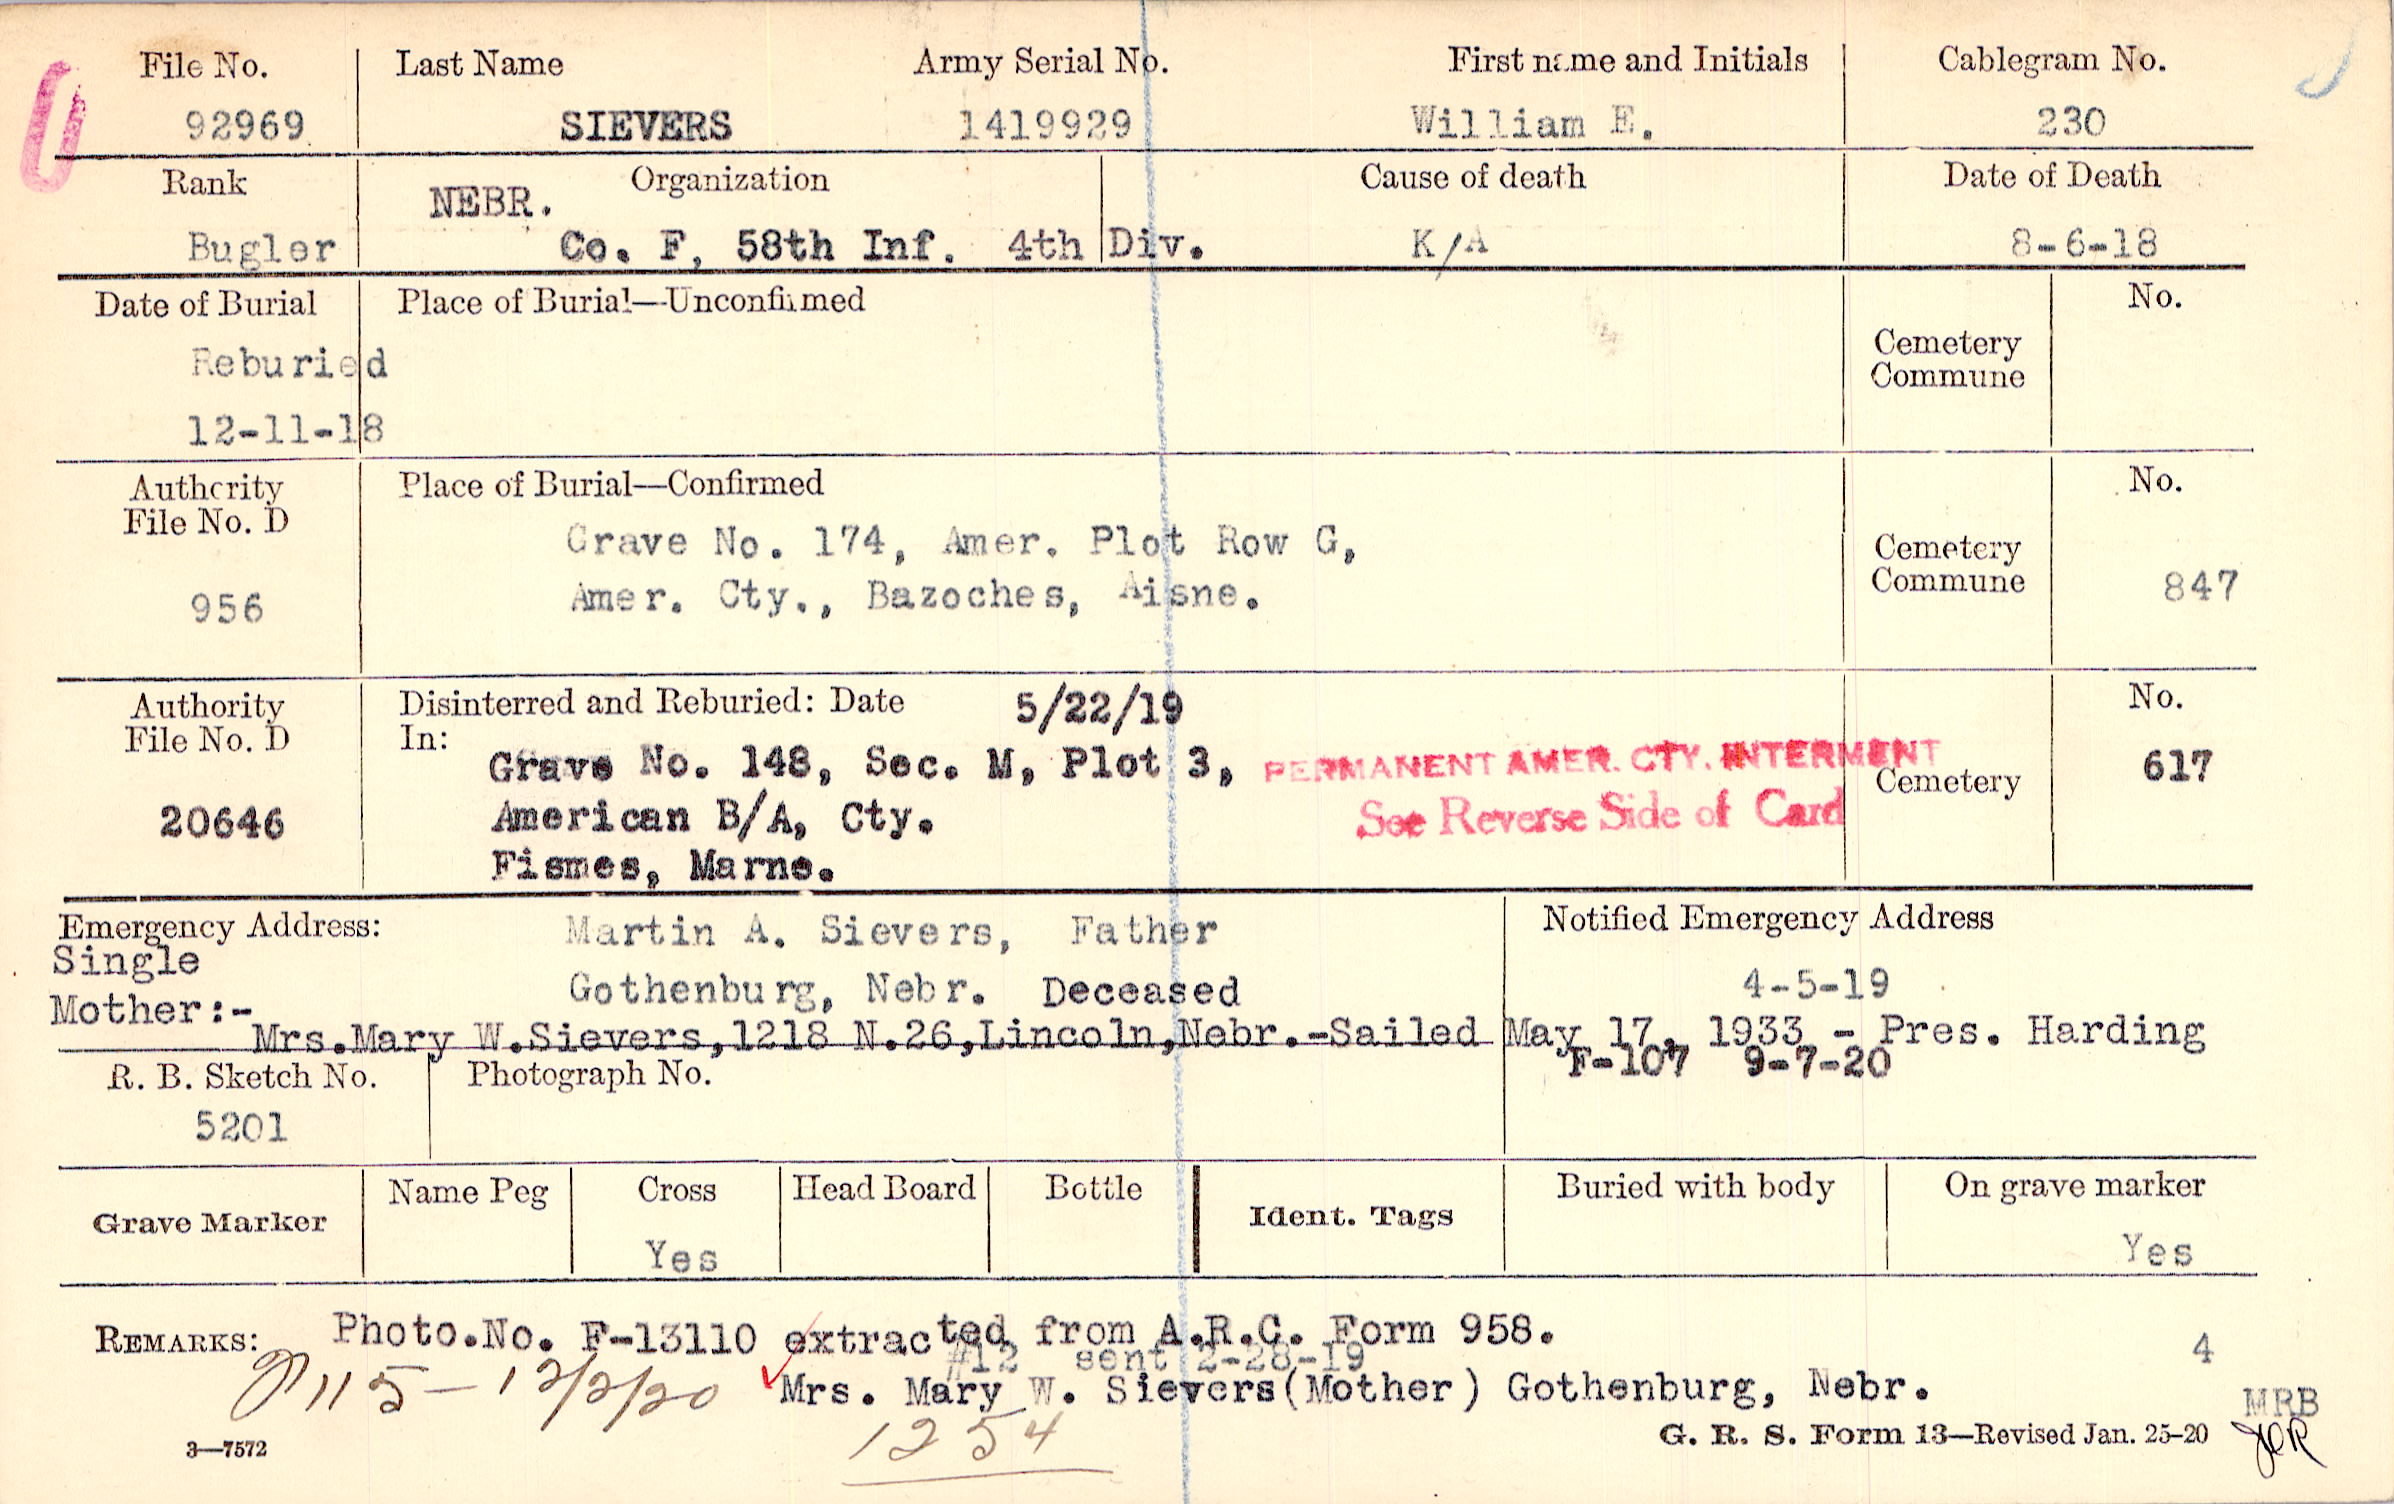 File No. Last Name Army Serial No. First name and Initials Cablegram No.
92969 SIEVERS 1419929 William E. 230
Rank Organization Cause of death Date of Death
NEBR.
Bugler Co. F, 58th Inf. 4th Div. K/A 8-6-18
Date of Burial Place of Burial—Unconfirmed No.
Cemetery
Reburied Commune
12-11-18
Authority Place of Burial—Confirmed No.
File No. D
Grave No. 174, Amer. Plot Row G, Cemetery
956 Amer. Cty., Bazoches, Aisne. Commune 847
Authority Disinterred and Reburied: Date 5/22/19 No.
File No. D In:
Grave No. 148, Sec. M, Plot 3, PERMANENT AMER. CTY. INTERMENT Cemetery 617
20646 American B/A, Cty. See Reverse Side of Card
Fismes, Marne.
Emergency Address: Martin A. Sievers, Father Notified Emergency Address
Single
Gothenburg, Nebr. Deceased 4-5-19
Mother:-
Mrs.Mary W.Sievers,1218 N.26,Lincoln,Nebr.-Sailed May 17, 1933 - Pres. Harding
F-107 9-7-20
R. B. Sketch No. Photograph No.
5201
Grave Marker Name Peg Cross Head Board Bottle Ident. Tags Buried with body On grave marker
Yes Yes
REMARKS: Photo.No. F-13110 extracted from A.R.C. Form 958.
#12 sent 2-28-19 4
115-12/2/20 Mrs. Mary W. Sievers(Mother) Gothenburg, Nebr.
MRB
1254
3—7572 G. R. S. Form 13—Revised Jan. 25-20